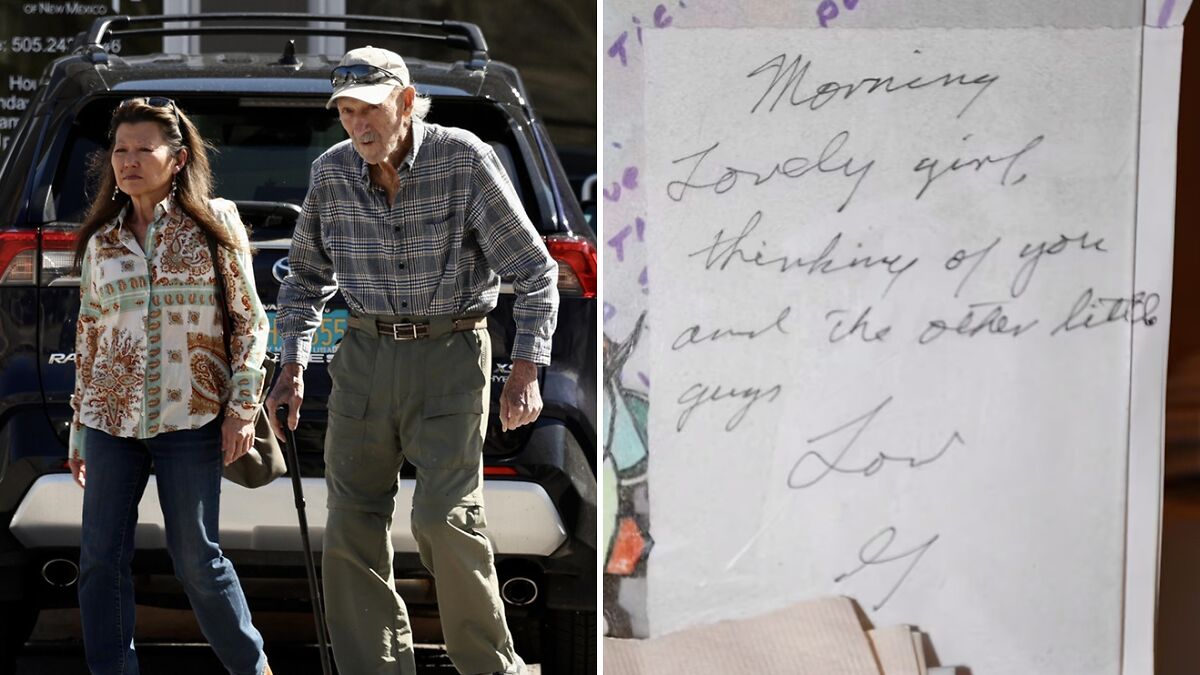 OF NEW MEXICO
505.24
Morning
Lovely girl,
thinking of you
and the other little
guys
Lov
G